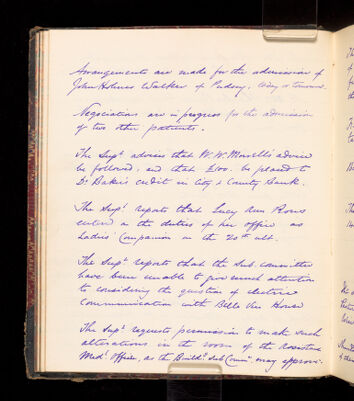 Arrangements are made for the admission of
John Holmes Walker of Pudsey, today or tomorrow.
Negociations are in progress for the admission
of two other patients.
The Supt advises that W. W. Morrell's advice
be followed, and that £100. be placed to
Dr Baker's credit in City & County Bank.
The Supt reports that Lucy Ann Rous
entered on the duties of her office as
Ladies' Companion on the 20th ult.
The Supt reports that the Sub. committee
have been unable to give much attention
to considering the question of electric
communication with Belle Vue House
The Supt requests permission to make such
alterations in the room of the Assistant
Med: Officer, as the Buildg Sub Comm: may approve.